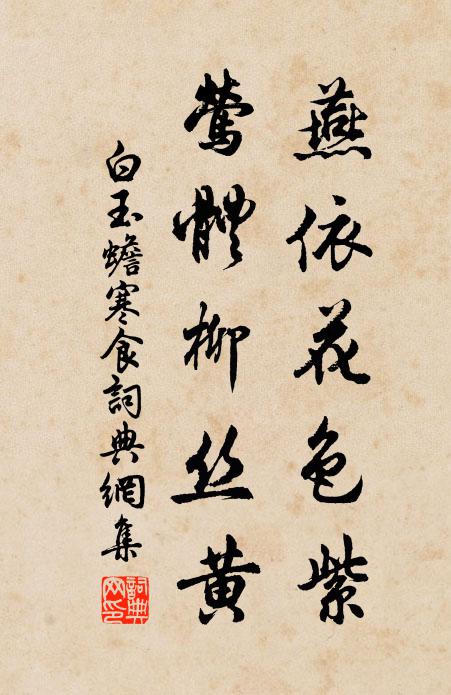 燕依花色紫
莺體柳丝黄
白玉蟾寒食詞典網集
詞典网印